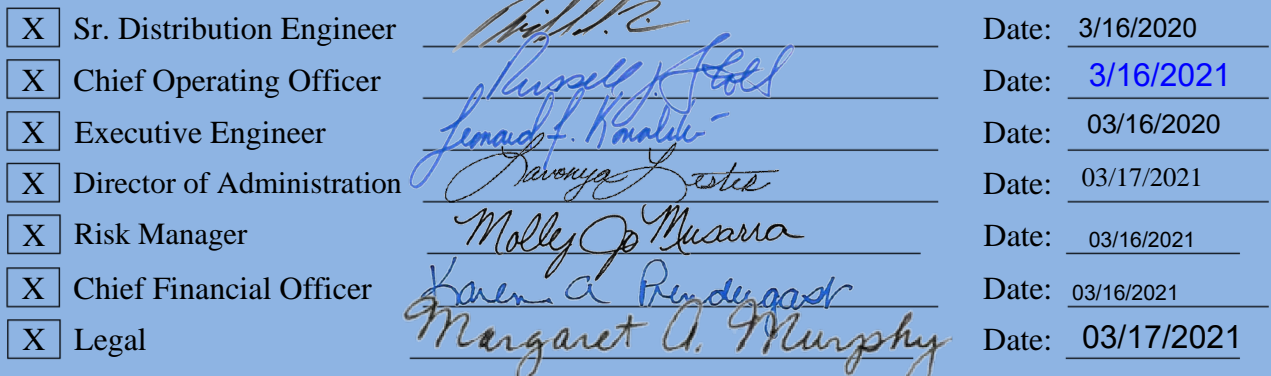 X Sr. Distribution Engineer Date: 3/16/2020
X Chief Operating Officer Russell J. Date: 3/16/2021
X Executive Engineer Date: 03/16/2020
X Director of Administration Lavonya Lester Date: 03/17/2021
X Risk Manager Molly Jo Musarra Date: 03/16/2021
X Chief Financial Officer Karen A Prendergast Date: 03/16/2021
X Legal Margaret A. Murphy Date: 03/17/2021